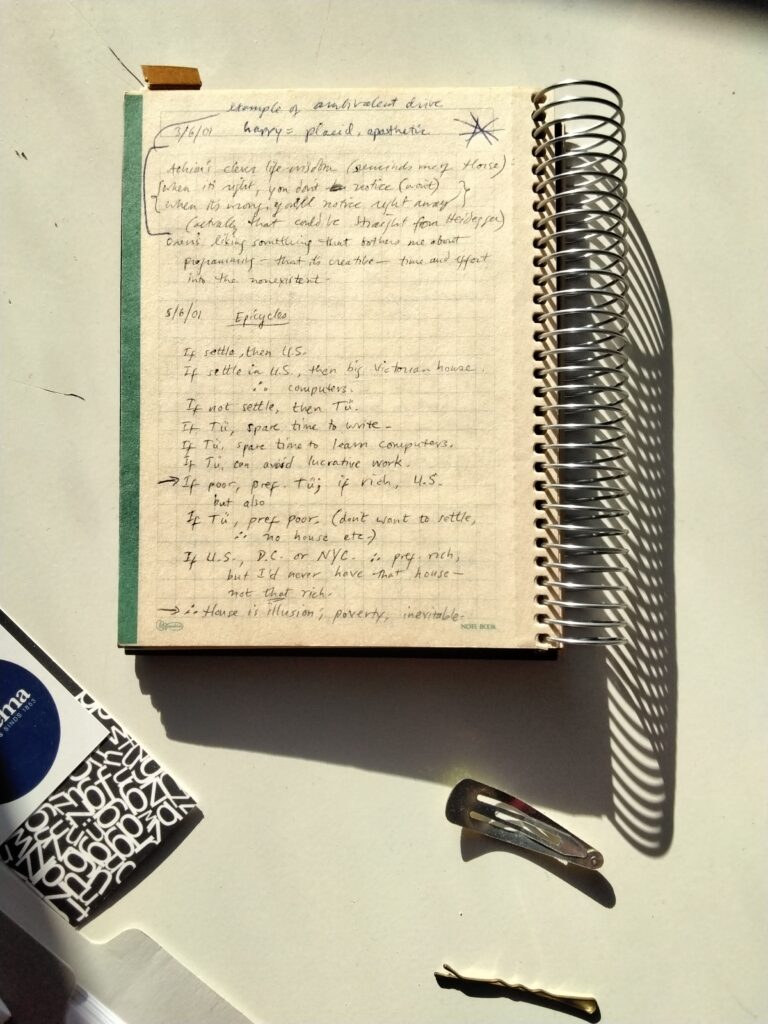 example of ambivalent drive
3/6/01 happy = placid, apathetic
Achim's clever life wisdom (reminds me of Horse):
{when it's right, you don't notice (want)
{when it's wrong, you'll notice right away}
(actually that could be straight from Heidegger)
Owen's liking something that bothers me about
programming – that it's creative – time and effort
into the nonexistent.
5/6/01 Epicycles
If settle, then U.S.
If settle in U.S., then big Victorian house.
∴ computers.
If not settle, then Tü.
If Tü, spare time to write –
If Tü, spare time to learn computers.
If Tü, can avoid lucrative work.
→ If poor, pref. Tü; if rich, U.S.
but also
If Tü, pref poor. (don't want to settle,
∴ no house etc.)
If U.S., D.C. or NYC. ∴ pref. rich,
but I'd never have that house –
not that rich.
→ ∴ House is illusion; poverty, inevitable.
NOTE BOOK
ema
SINDS 1853